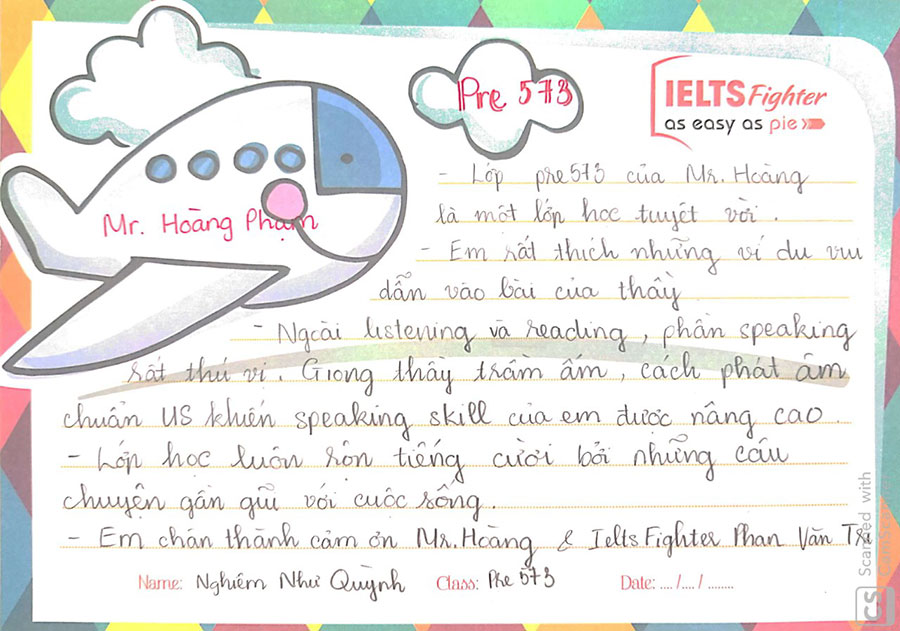 Pre 573
IELTS Fighter
as easy as pie
Mr. Hoàng Phạm
- Lớp pre573 của Mr. Hoàng
là một lớp học tuyệt vời.
- Em rất thích những ví dụ vui
dẫn vào bài của thầy
- Ngoài listening và reading, phần speaking
rất thú vị. Giọng thầy trầm ấm, cách phát âm
chuẩn US khiến speaking skill của em được nâng cao.
- Lớp học luôn rộn tiếng cười bởi những câu
chuyện gần gũi với cuộc sống.
- Em chân thành cảm ơn Mr. Hoàng & Ielts Fighter Phan Văn Trị
Name: Nghiêm Như Quỳnh Class: Pre 573 Date: .... /.... / ........
CS Scanned with